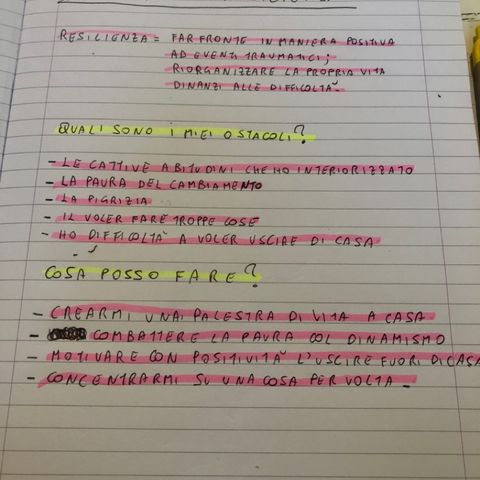 RESILIENZA = FAR FRONTE IN MANIERA POSITIVA
AD EVENTI TRAUMATICI;
RIORGANIZZARE LA PROPRIA VITA
DINANZI ALLE DIFFICOLTÀ.
QUALI SONO I MIEI OSTACOLI?
- LE CATTIVE ABITUDINI CHE HO INTERIORIZZATO
- LA PAURA DEL CAMBIAMENTO
- LA PIGRIZIA
- IL VOLER FARE TROPPE COSE
- HO DIFFICOLTÀ A VOLER USCIRE DI CASA
COSA POSSO FARE?
- CREARMI UNA PALESTRA DI VITA A CASA
- COMBATTERE LA PAURA COL DINAMISMO
- MOTIVARE CON POSITIVITÀ L'USCIRE FUORI DI CASA
- CONCENTRARMI SU UNA COSA PER VOLTA.